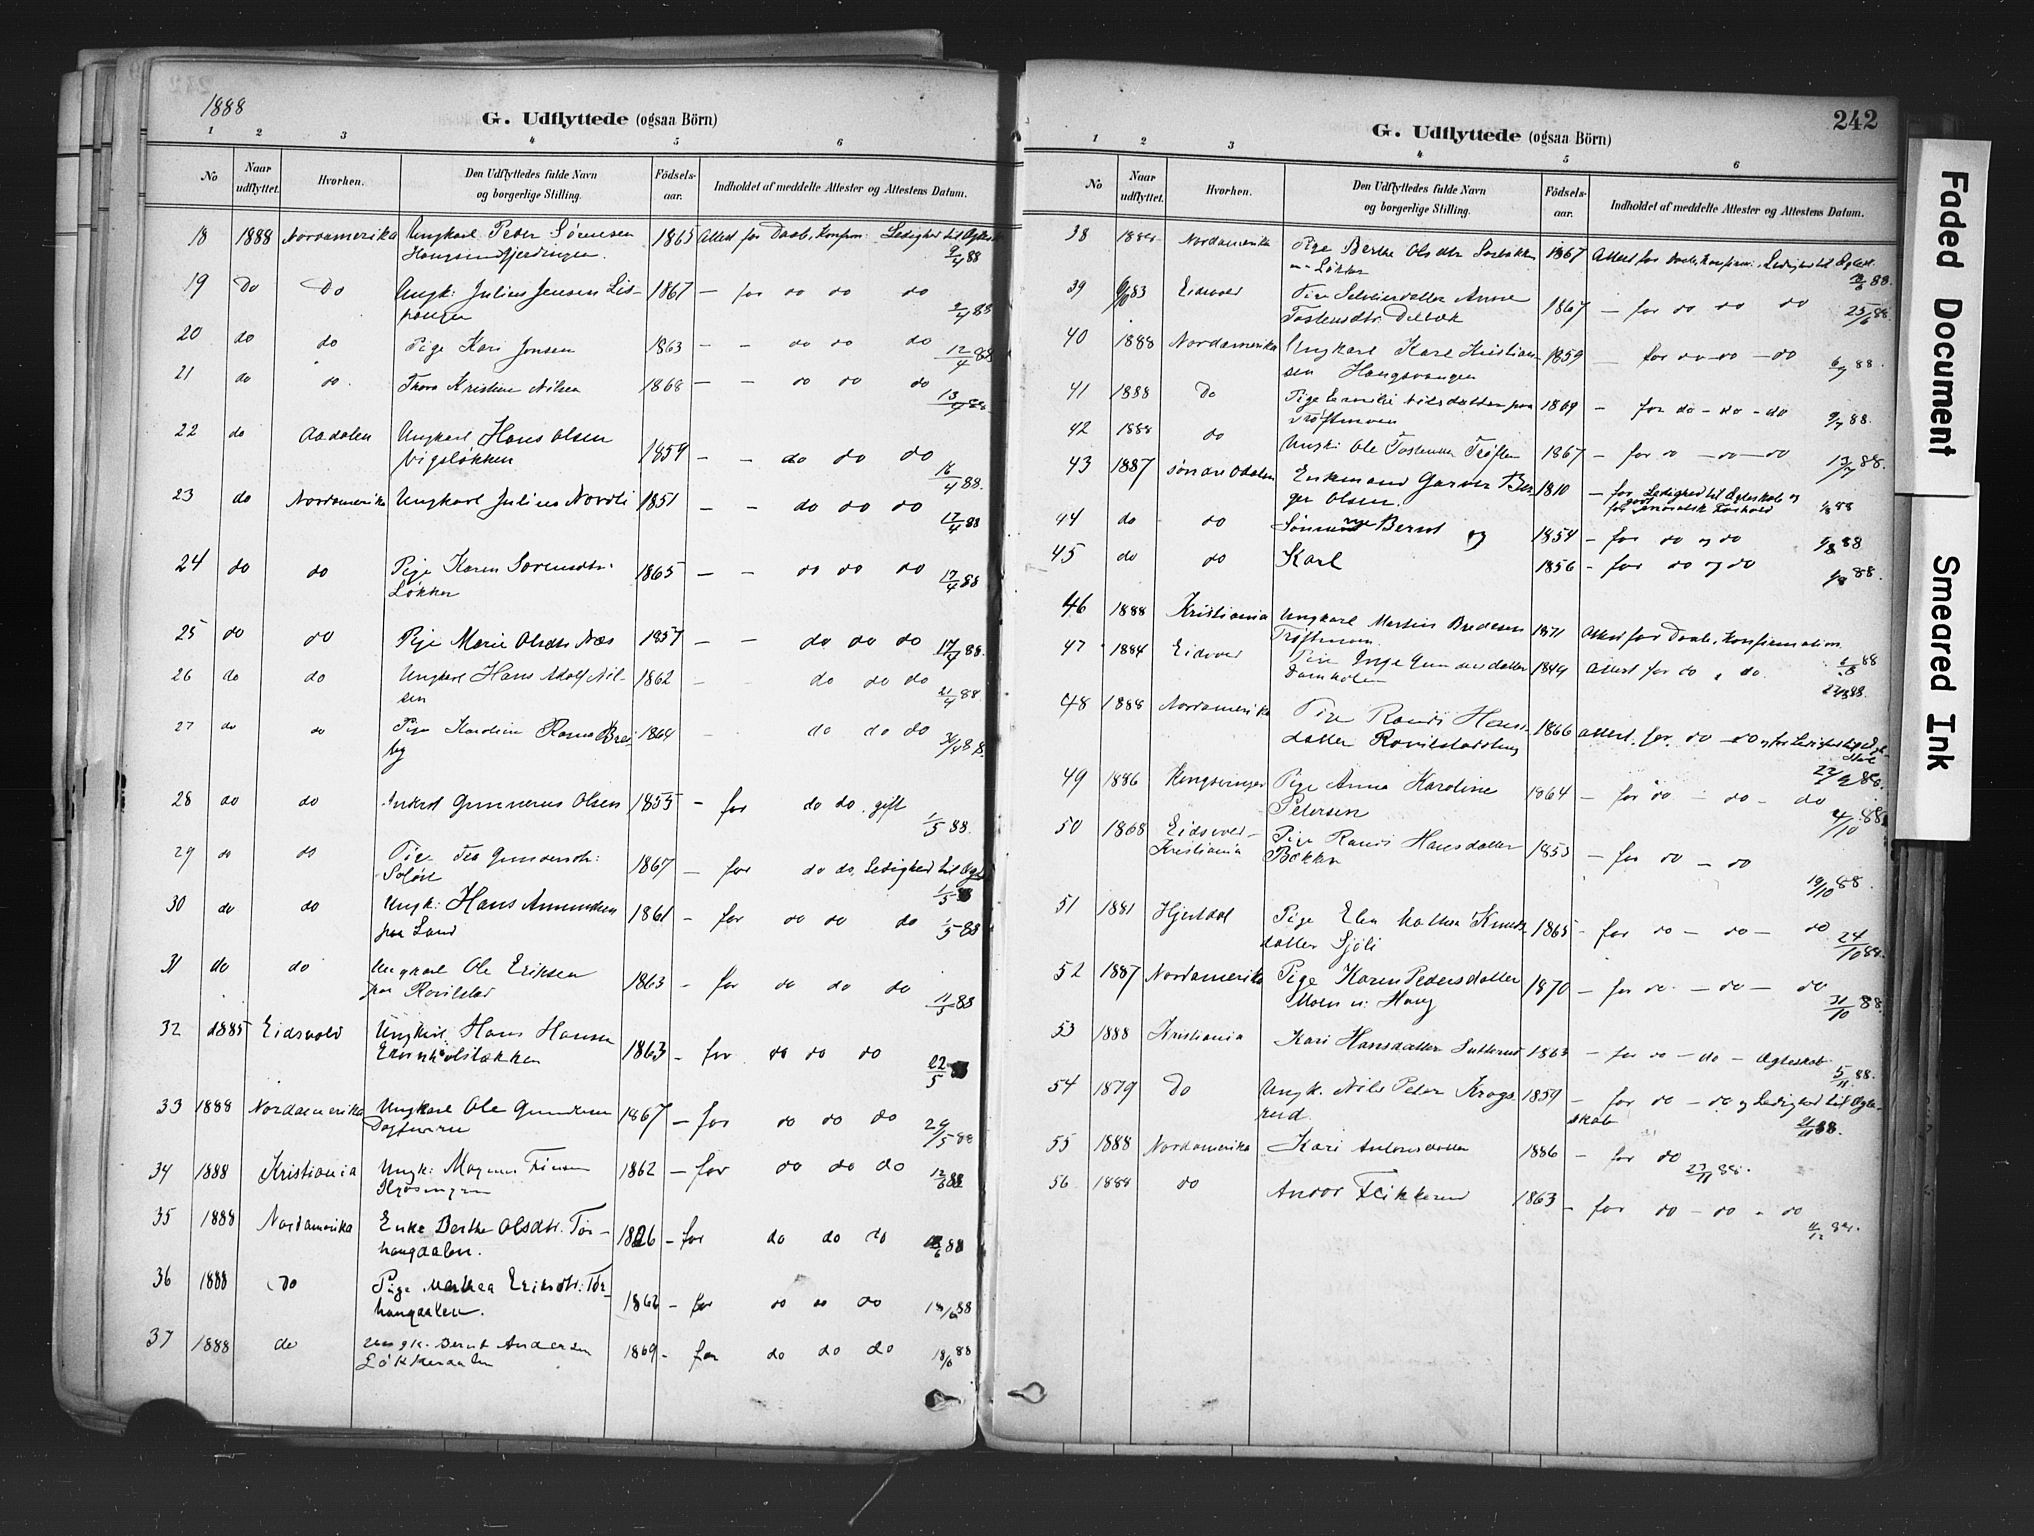 1888
G. Udflyttede (ogsaa Börn)
1 2 3 4 5 6
No Naar udflyttet. Hvorhen. Den Udflyttedes fulde Navn og borgerlige Stilling. Födsels-aar. Indholdet af meddelte Attester og Attestens Datum.
18 1888 Nordamerika Ungkarl Peder Sørensen 1865 Attest for Daab, Konfirm: Ledighed til Ægtesk
9/4 88
19 Do Do Ungk: Julius Jensen Lis- 1867 - for do do do
9/4 88
20 do do Pige Kari Jonsen 1863 - - do do do
12/4 88
21 do do Thora Kristine Nilsen 1868 - - do do do
13/4 88
22 do Aadalen Ungkarl Hans Olsen 1859 - - do do do
Vigsløkken 16/4 88.
23 do Nordamerika Ungkarl Julius Nordli 1851 - - do do do
17/4 88
24 do do Pige Karen Sorensdtr: 1865 - - do do do
Løkken 17/4 88
25 do do Pige Marie Olsdtr Næs 1857 - - do do do
17/4 88.
26 do do Ungkarl Hans Adolf Nil- 1862 - do do do
sen 21/4 88
27 do do Pige Karoline 1864 - do do do
by
28 do do Gunnerus Olsen 1855 - for do do, gift
1/5 88.
29 do do Pige Gundersdtr: 1867 - for do do, Ledighed til Ægt
1/5 88
30 do do Ungk: Hans Amundsen 1861 - for do do do
paa Lund 1/5 88
31 do do Ungkarl Ole Eriksen 1863 - for do do do
paa 11/5 88
32 1885 Eidsvold Ungkarl Hans Hansen 1863 - for do do do
22/5 88
33 1888 Nordamerika Ungkarl Ole Gundersen 1867 - for do do do
29/5 88
34 1888 Kristiania Ungk: Magnus 1862 - for do do do
12/6 88
35 1888 Nordamerika Enke Berthe Olsdtr. Tor- 1826 - for do do do
haugdalen. 18/6 88
36 1888 Do Pige Marthea Eriksdtr: Tor- 1862 - for do do do
haugdalen. 18/6 88
37 1888 do Ungk. Bernt Andersen 1869 - for do do do
Løkkeraalen 18/6 88
242
G. Udflyttede (ogsaa Börn)
1 2 3 4 5 6
No Naar udflyttet. Hvorhen. Den Udflyttedes fulde Navn og borgerlige Stilling. Födsels-aar. Indholdet af meddelte Attester og Attestens Datum.
38 1888 Nordamerika Pige Berthe Olsdtr 1867 Attest for Daab, Konfirm: Ledighed til Ægtesk.
Løkken
39 Eidsvold Pige Anne 1867 - for do do do
Tostensdtr. 25/6 88.
40 1888 Nordamerika Ungkarl Karl Kristian- 1859 - for do - do - do
sen Haugsvangen 6/7 88.
41 1888 Do Pige 1869 - for do - do - do
Trøftmoen 9/7 88.
42 1888 do Ungk: Ole Tostensen Trøften 1867 - for do - do - do
13/7 88.
43 1887 Søndre Odalen Enkemand Gunder Ber- 1810 - for Ledighed til Ægteskab og
ger Olsen. for godt moralsk Forhold 1/8 88
44 do do Sønnerne Bernt og 1854 - for do og do
1/8 88
45 do do Karl 1856 - for do og do
1/8 88.
46 1888 Kristiania Ungkarl Martin Bredesen 1871 Attest for Daab, Konfirmation
Trøftmoen
47 1884 Eidsvold Pige Inge Gundersdatter 1849 Attest for do, do.
48 1888 Nordamerika Pige Randi Hans- 1866 Attest for do - do og for Ledighed til Ægte-
datter skab
49 1886 Kongsvinger Pige Anna Karoline 1864 - for do - do - do
Petersen 4/10 88
50 1868 Eidsvold - Pige Randi Hansdatter 1853 - for do - do
Kristiania Bækken 19/10 88.
51 1881 Hjertdal Pige Elen Mathea Knuds- 1865 - for do - do - do
datter Sjöli 24/10 88.
52 1887 Nordamerika Pige Karen Pedersdatter 1870 - for do - do - do
Moen u: Haug 31/10 88.
53 1888 Kristiania Kari Hansdatter 1863 - for do - do - Ægteskab
5/11 88.
54 1879 Do Ungk. Nils Peter Krogs- 1859 - for do - do og Ledighed til Ægte-
rud. skab 21/11 88.
55 1888 Nordamerika Kari 1886 - for do
23/11 88.
56 1888 do Andor Flikkerud 1863 - for do - do - do
11/12 88.
Faded Document
Smeared Ink